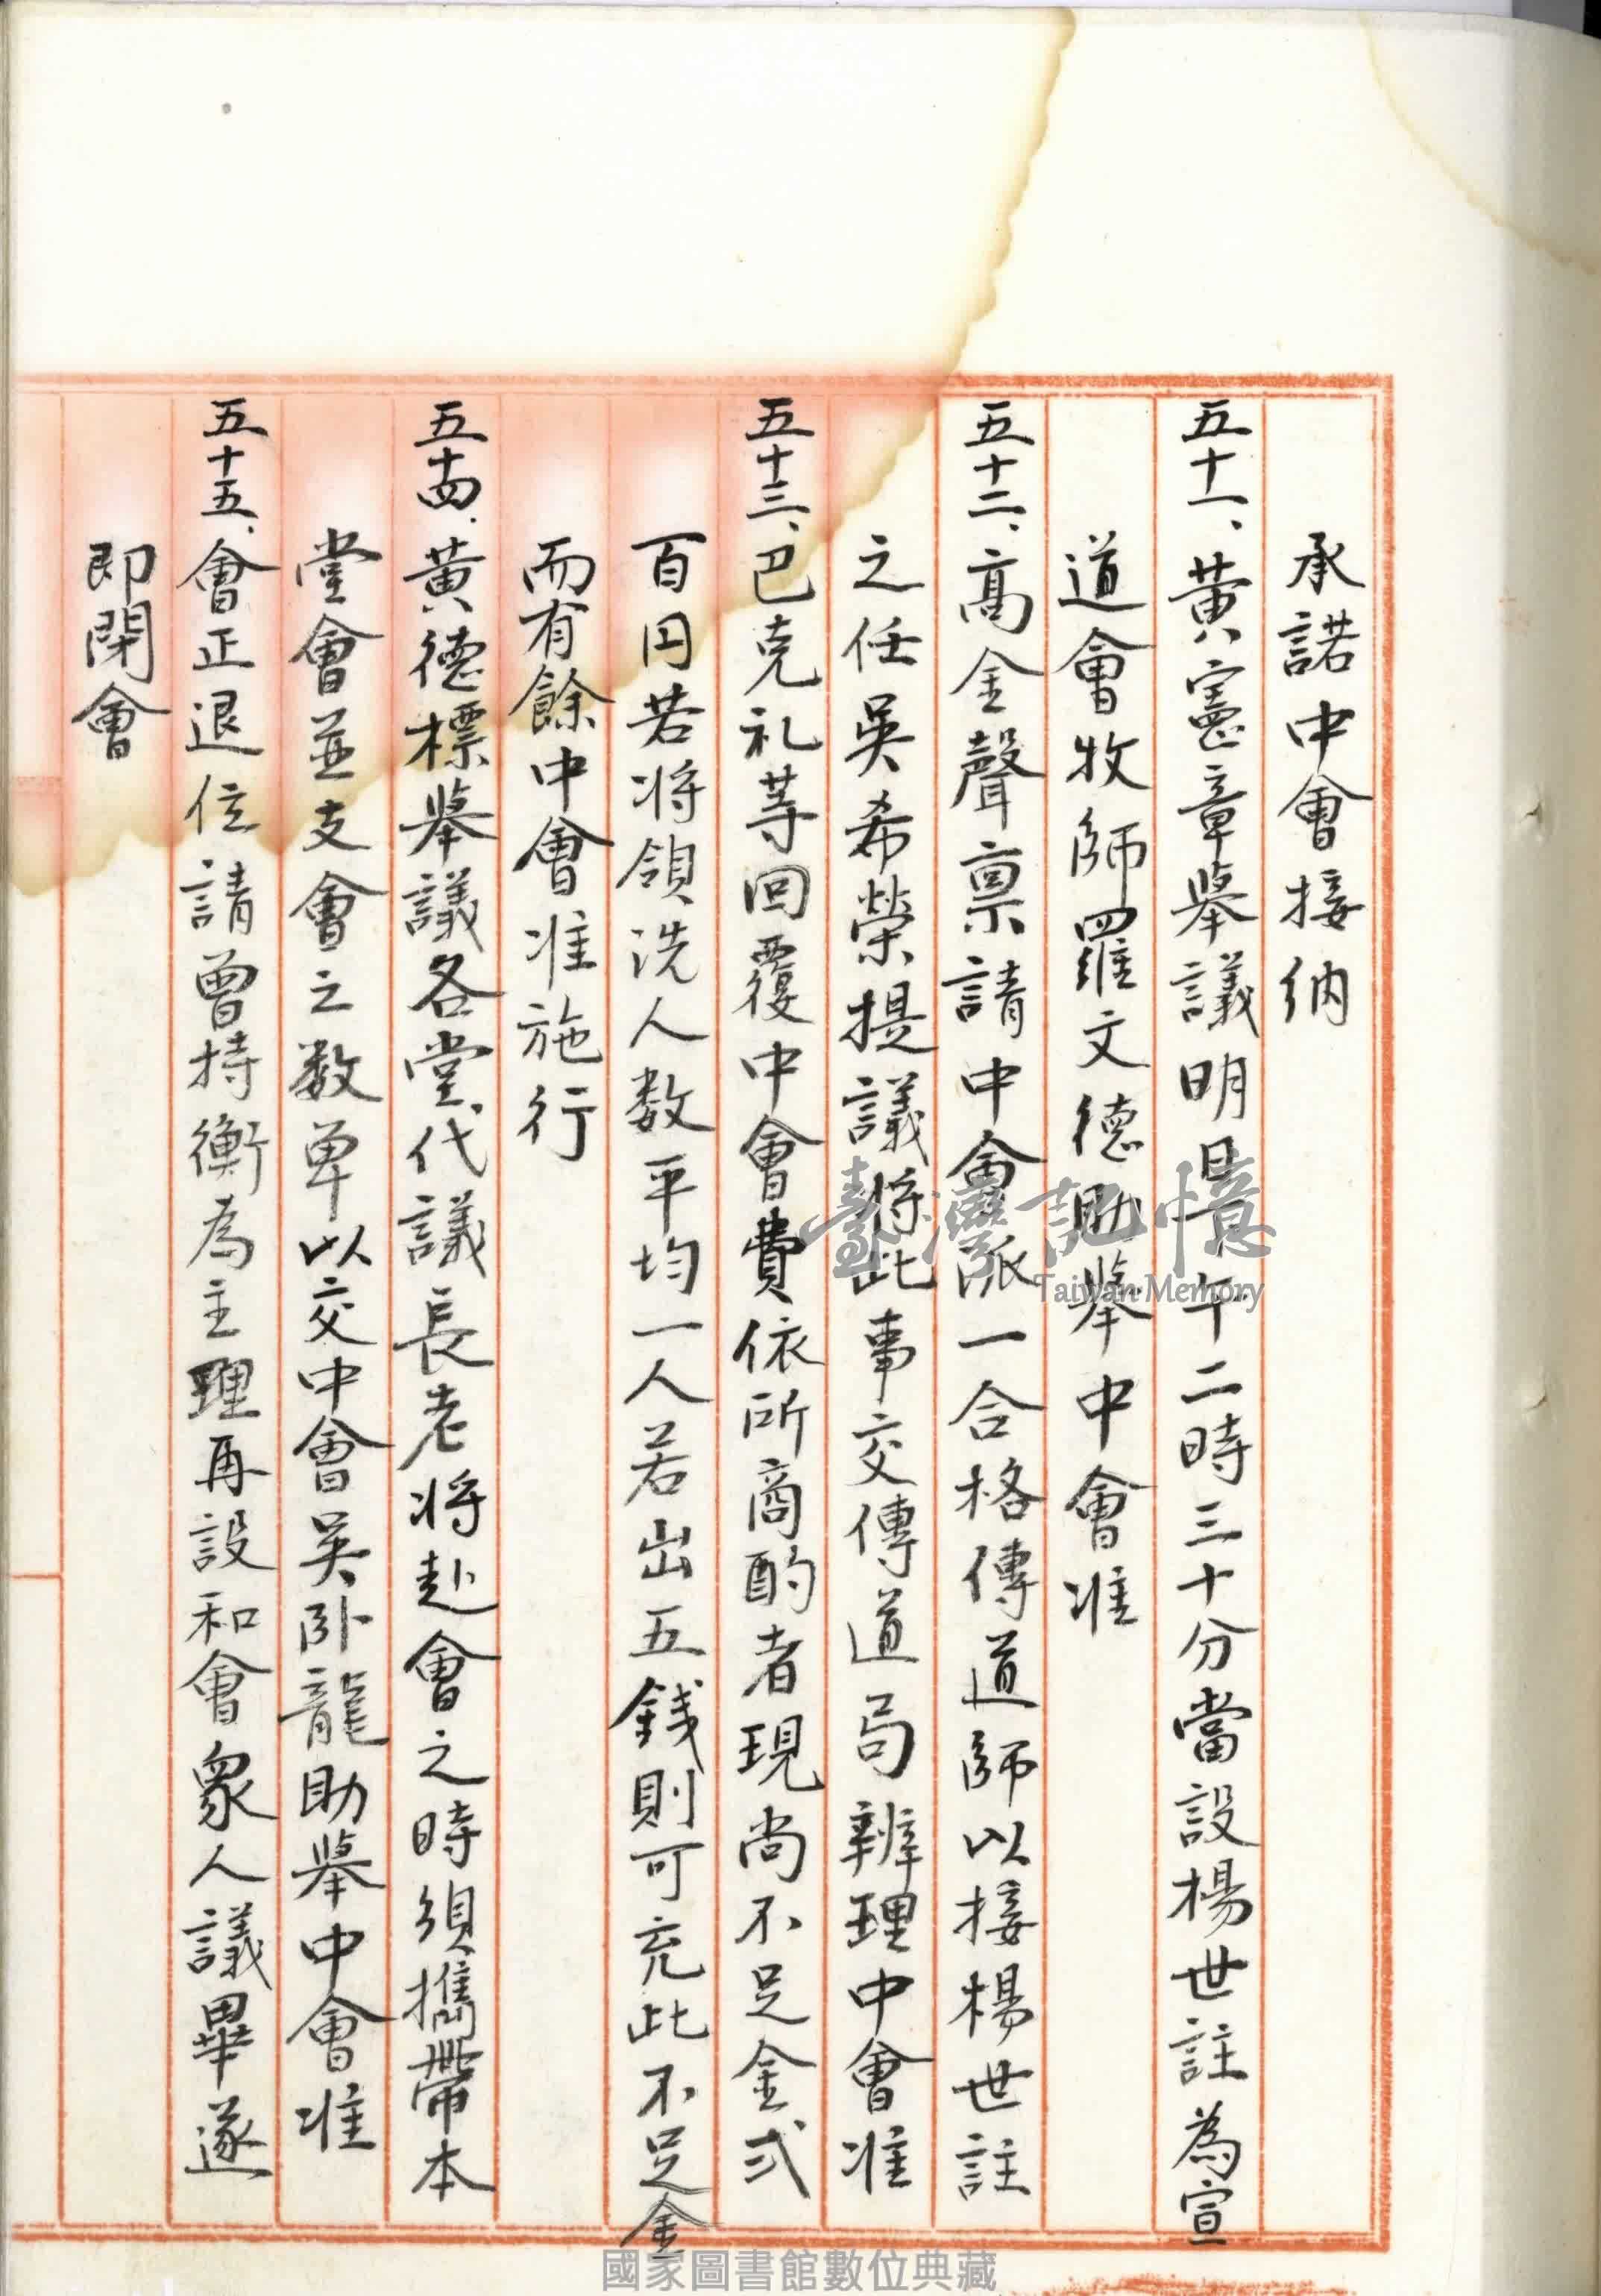 承諾中會接納
五十一、黃憲章舉議明日下午二時三十分當設楊世註為宣
道會牧師羅文德助舉中會准
五十二、高金聲禀請中會派一合格傳道師以接楊世註
之任吳希榮提議將此事交傳道局辦理中會准
五十三、巴克礼等回覆中會費依所商酌者現尚不足金弍
百円若将領洗人数平均一人若出五銭則可充此不足金
而有餘中會准施行
五十四、黃德標舉議各堂代議長老将赴會之時須攜帶本
堂會並支會之数单以交中會吳卧龍助舉中會准
五十五、會正退位請曾持衡為主理再設和會眾人議畢遂
即閉會
臺灣記憶
Taiwan Memory
國家圖書館數位典藏